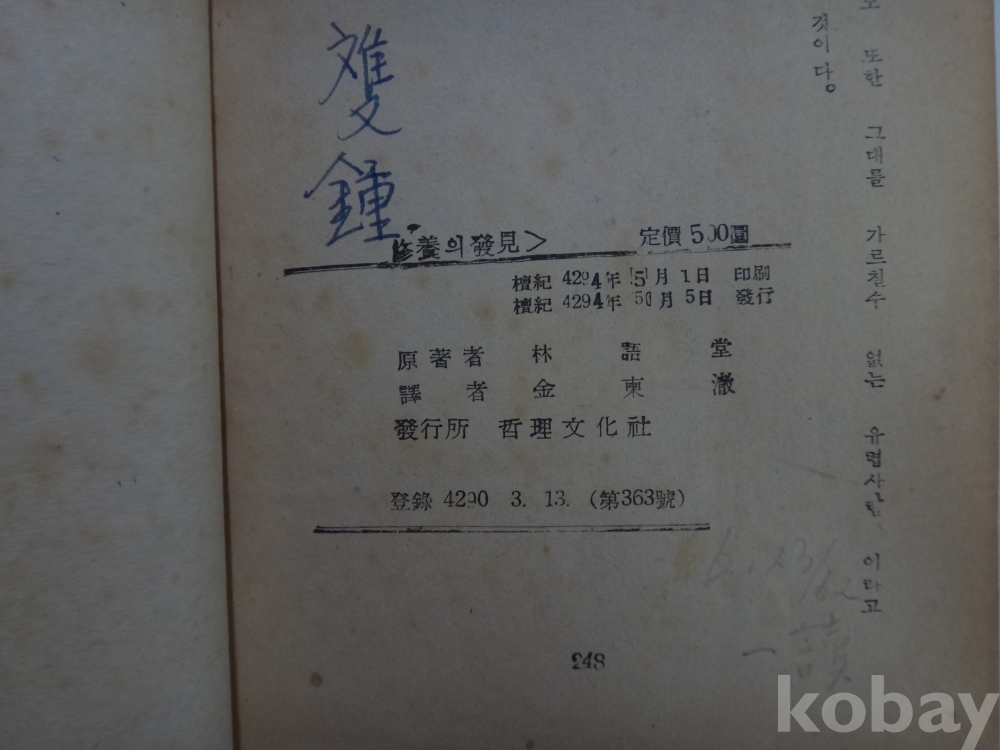 또한 그대를 가르칠수 없는 유렵사람 이라고
것이당。
雙
鍾
修養의發見>　定價 500圜
檀紀 4294年 5月 1日 印刷
檀紀 4294年 5月 5日 發行
原著者 林語堂
譯者 金東澈
發行所 哲理文化社
登錄 4290 3. 13. (第363號)
一讀
248
kobay